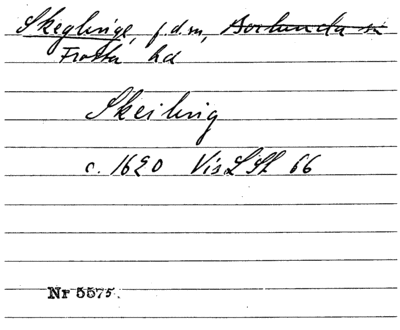 Skeglinge, f.d.m, Borlunda sn
Frosta hd
Skeiling
c. 1620 Vis.LSt 66
Nr 5575.